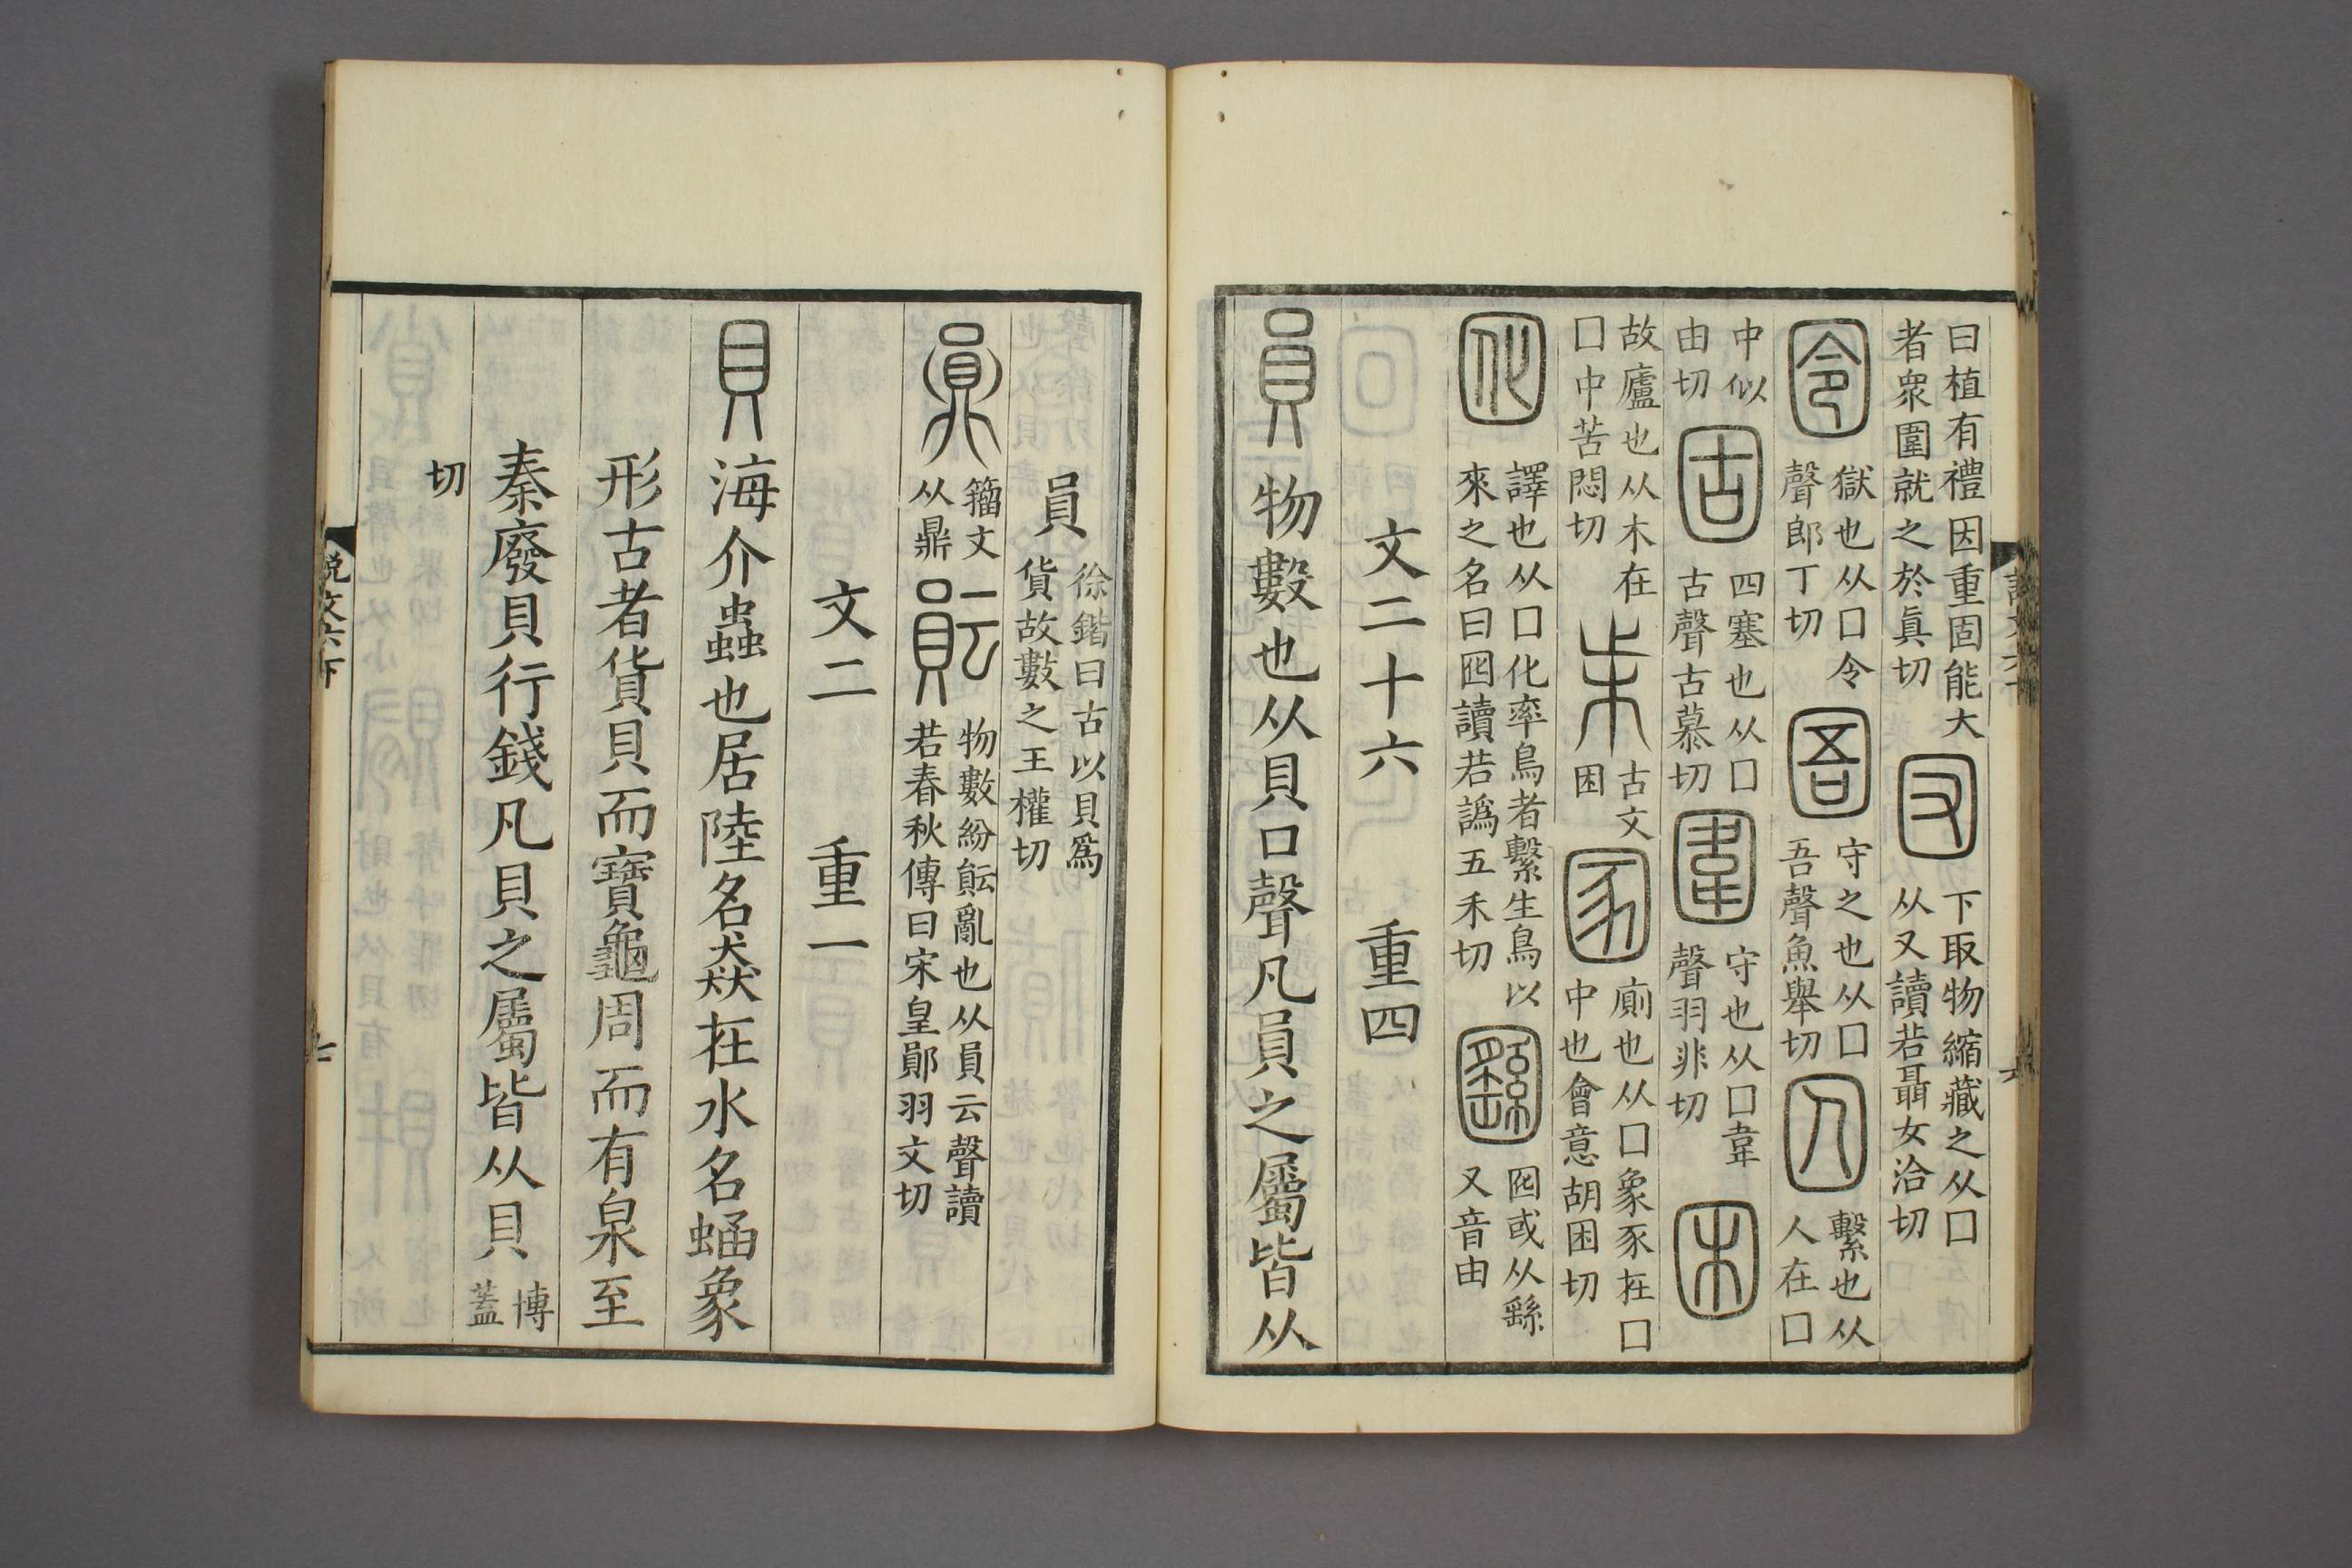 曰植有禮因重固能大
者衆圍就之於眞切
㘝
下取物縮藏之从囗
从又讀若聶女洽切
囹
獄也从囗令
聲郎丁切
圄
守之也从囗
吾聲魚舉切
囚
繫也从
人在囗
中似
由切
固
四塞也从囗
古聲古慕切
圍
守也从囗韋
聲羽非切
困
故廬也从木在
囗中苦悶切
朱
古文
困
圂
廁也从囗象豕在囗
中也會意胡困切
囮
譯也从囗化率鳥者繫生鳥以
來之名曰囮讀若譌五禾切
𡈙
囮或从繇
又音由
文二十六 重四
員物數也从貝口聲凡員之屬皆从
員
徐鍇曰古以貝爲
貨故數之王權切
鼎
籀文
从鼎
䫟
物數紛䫟亂也从員云聲讀
若春秋傳曰宋皇鄖羽文切
文二 重一
貝海介蟲也居陸名猋在水名蜬象
形古者貨貝而寶龜周而有泉至
秦廢貝行錢凡貝之屬皆从貝
博
蓋
切
說文六下
七